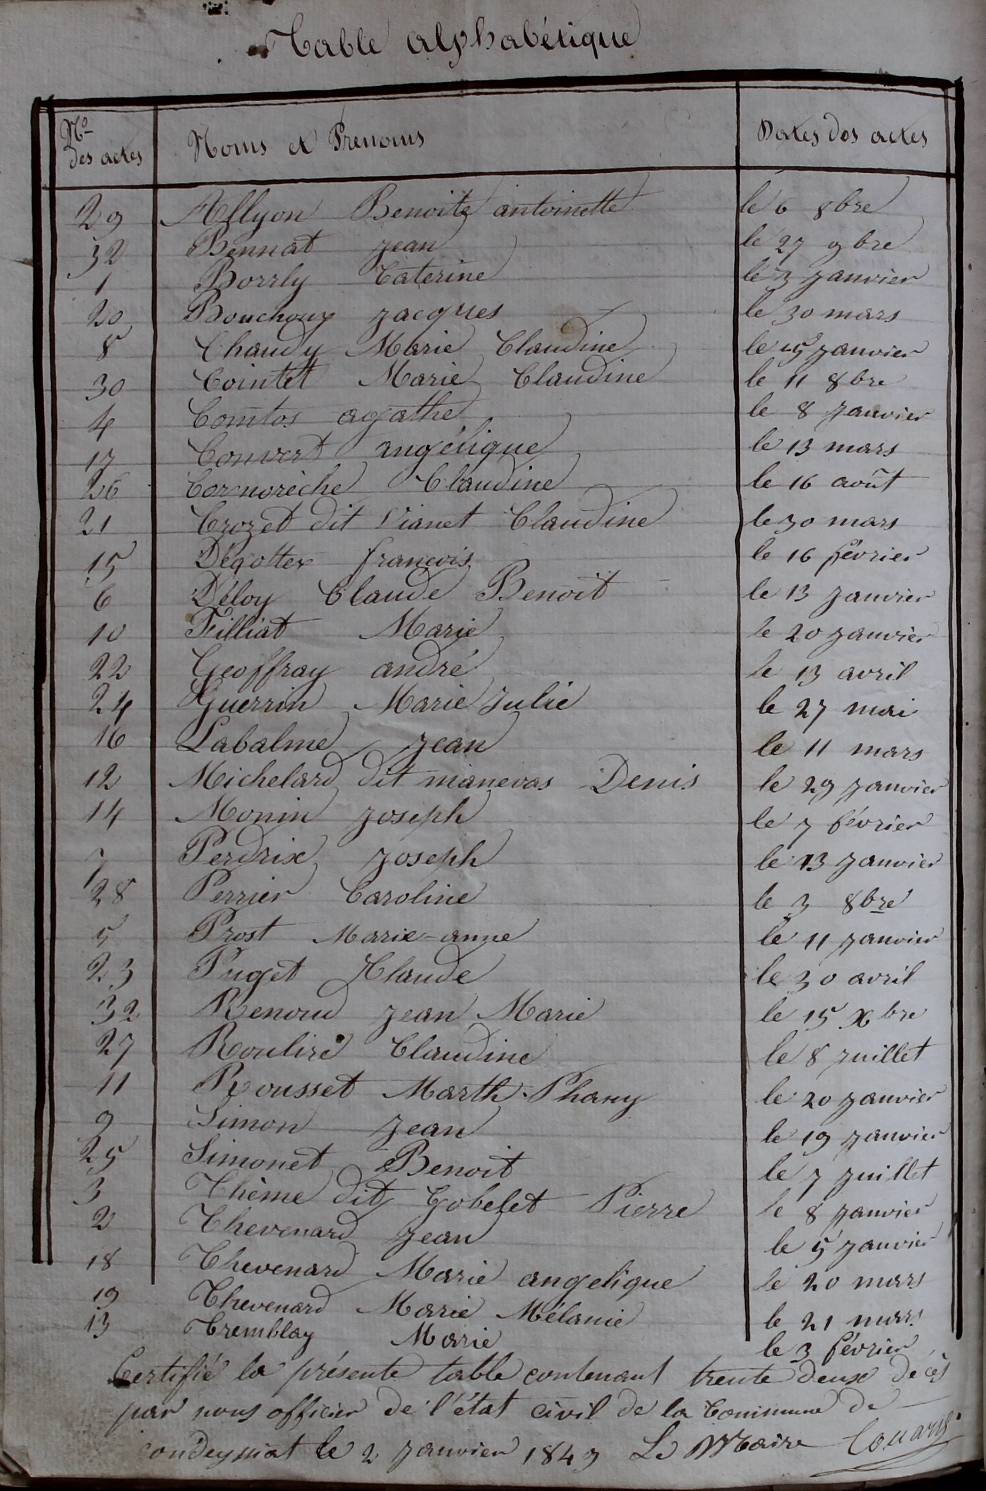 Table alphabétique
No des actes Noms et Prenoms Dates des actes
29 Allyon Benoite antoinette le 6 8bre
32 Bennat Jean le 27 9bre
1 Borrly Caterine le 3 Janvier
20 Bouchoux Jacques le 30 mars
8 Chaudy Marie Claudine le 15 Janvier
30 Cointet Marie Claudine le 11 8bre
4 Comtos agathe le 8 Janvier
17 Convert angélique le 13 mars
26 Cormorèche Claudine le 16 août
21 Crozet dit Vianet Claudine le 30 mars
15 Dégottex françois le 16 février
6 Déloy Claude Benoit le 13 Janvier
10 Filliat Marie le 20 Janvier
22 Geoffray andré le 13 avril
24 Guerrin Marie Julie le 27 mai
16 Labalme Jean le 11 mars
12 Michelard dit manevas Denis le 29 Janvier
14 Monin Joseph le 7 février
7 Perdrix Joseph le 13 Janvier
28 Perrier Caroline le 3 8bre
5 Prost Marie-anne le 11 Janvier
23 Puget Claude le 30 avril
32 Renoud Jean Marie le 15 Xbre
27 Roulire Claudine le 8 Juillet
11 Rousset Marth. Phany le 20 Janvier
9 Simon Jean le 19 Janvier
25 Simonet Benoit le 7 Juillet
3 Thème dit Gobelet Pierre le 8 Janvier
2 Thevenard Jean le 5 Janvier
18 Thevenard Marie angelique le 20 mars
19 Thevenard Marie Mélanie le 21 mars
13 Tremblay Marie le 3 février
Certifié la présente table contenant trente deux décès
par nous officier de l'état civil de la Commune de
condeyssiat le 2 Janvier 1843 Le Maire